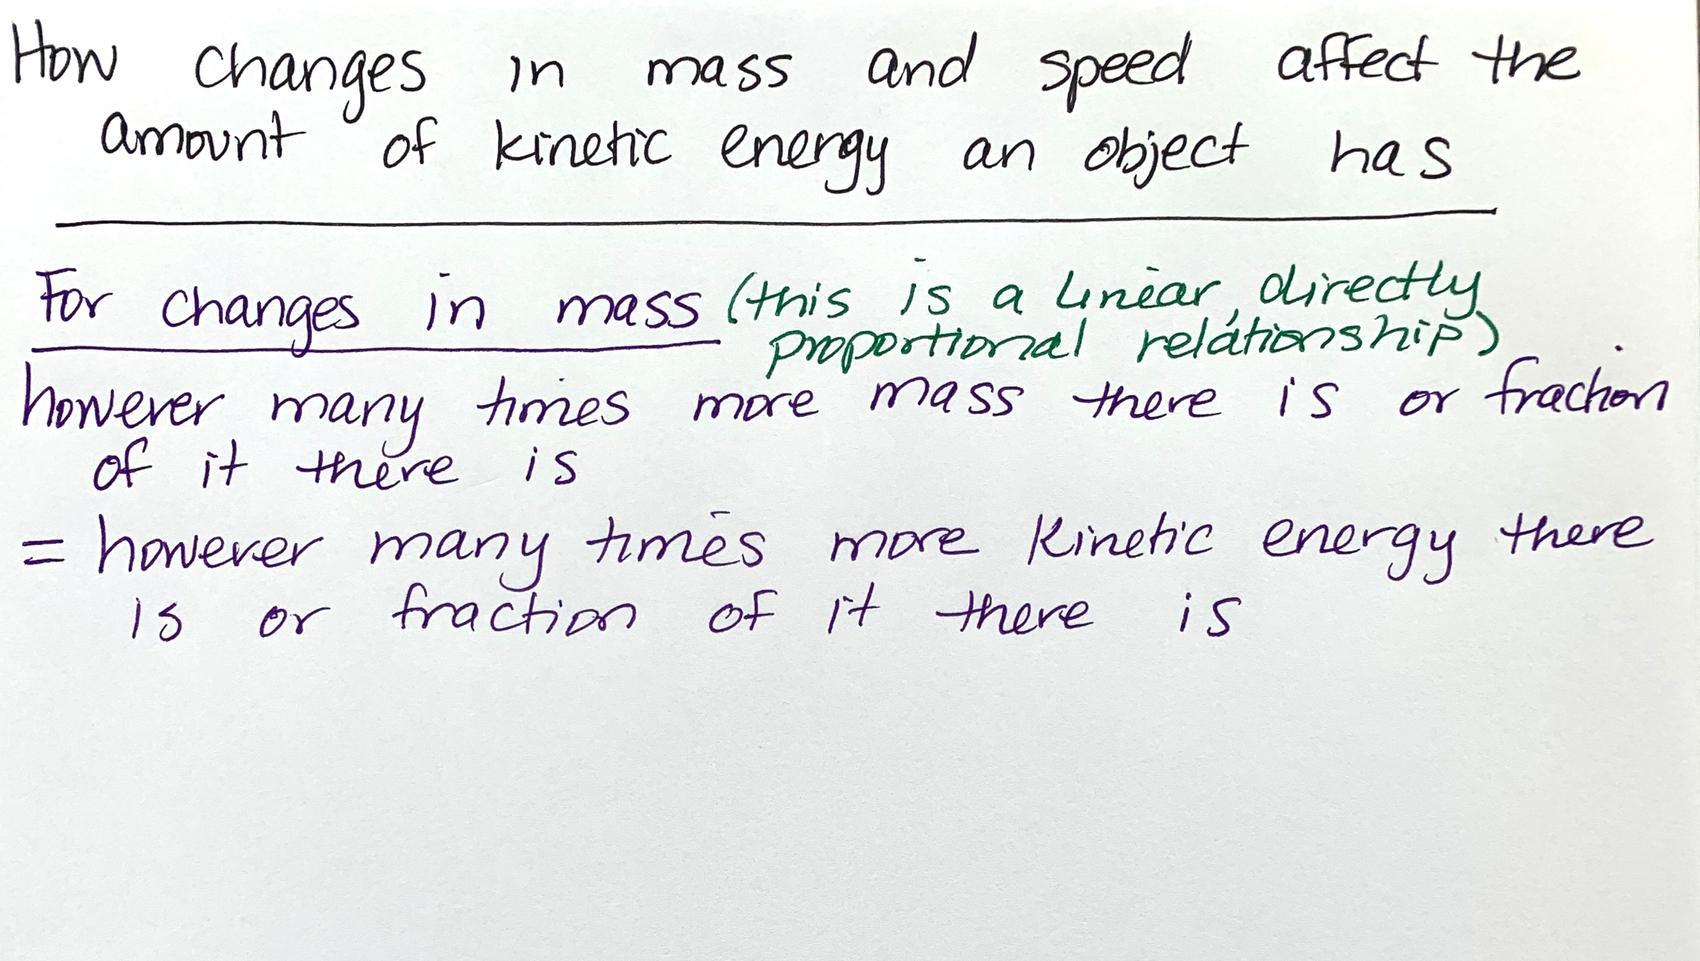 How changes in mass and speed affect the
amount of kinetic energy an object has
For changes in mass (this is a linear, directly
proportional relationship)
however many times more mass there is or fraction
of it there is
= however many times more kinetic energy there
is or fraction of it there is